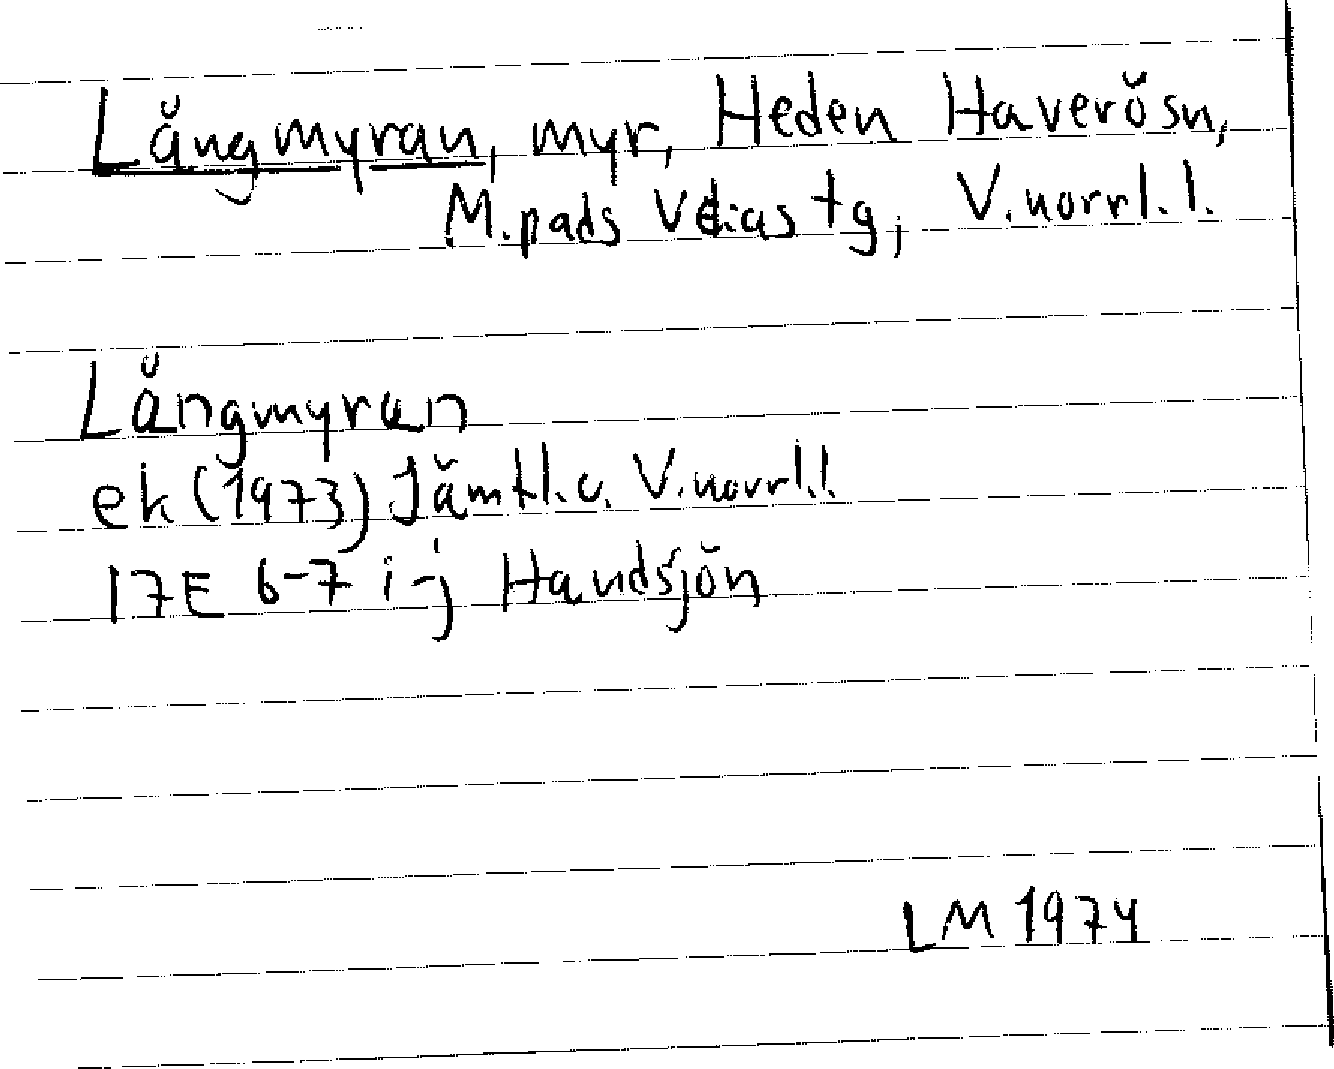 Långmyran, myr, Heden Haverösn,
M.pads V tg, V.norrl.l.
Långmyran
ek (1973) Jämtl.o. V.norrl.l
17E 6-7 i-j Handsjön
LM 1974